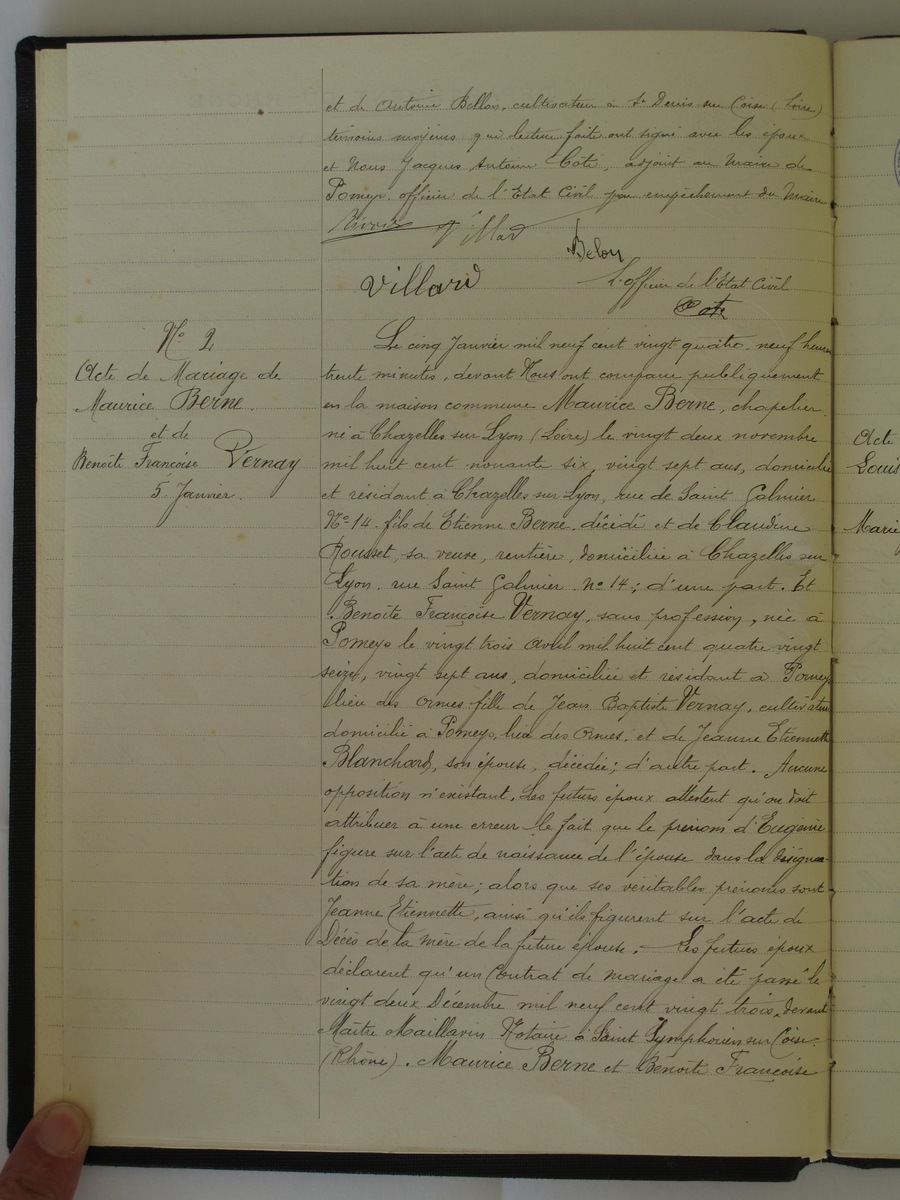 et de Antoine Bellon, cultivateur à St Denis sur Coise (Loire)
témoins majeurs qui lecture faite ont signé avec les époux
et Nous Jacques Antoine Cote, adjoint au Maire de
Pomeys officier de l'Etat Civil par empêchement du Maire
Villard
Belon
Villard
L'officier de l'Etat Civil
Cote
N° 2
Acte de Mariage de
Maurice Berne
et de
Benoîte Françoise Vernay
5 Janvier.
Le cinq Janvier mil neuf cent vingt quatre neuf heures
trente minutes, devant Nous ont comparu publiquement
en la maison commune Maurice Berne, chapelier
né à Chazelles sur Lyon (Loire) le vingt deux novembre
mil huit cent nonante six, vingt sept ans, domicilié
et résidant à Chazelles sur Lyon, rue de Saint Galmier
N° 14 fils de Etienne Berne décédé et de Claudine
Rousset, sa veuve, rentière, domiciliée à Chazelles sur
Lyon. rue Saint Galmier n° 14; d'une part. Et
Benoîte Françoise Vernay, sans profession, née à
Pomeys le vingt trois Avril mil huit cent quatre vingt
seize, vingt sept ans, domiciliée et résidant à Pomeys
lieu des Ormes fille de Jean Baptiste Vernay, cultivateur
domicilié à Pomeys, lieu des Ormes. et de Jeanne Etiennette
Blanchard, son épouse, décédée; d'autre part. Aucune
opposition n'existant. Les futurs époux attestent qu'on doit
attribuer à une erreur le fait que le prénom d'Eugénie
figure sur l'acte de naissance de l'épouse dans la désigna-
tion de sa mère; alors que ses véritables prénoms sont
Jeanne Etiennette, ainsi qu'ils figurent sur l'acte de
Décès de la mère de la future épouse. - Les futurs époux
déclarent qu'un Contrat de mariage a été passé le
vingt deux Décembre mil neuf cent vingt trois, devant
Maître Maillavin Notaire à Saint Symphorien sur Coise.
(Rhône). Maurice Berne et Benoîte Françoise
Acte
Louis
Marie